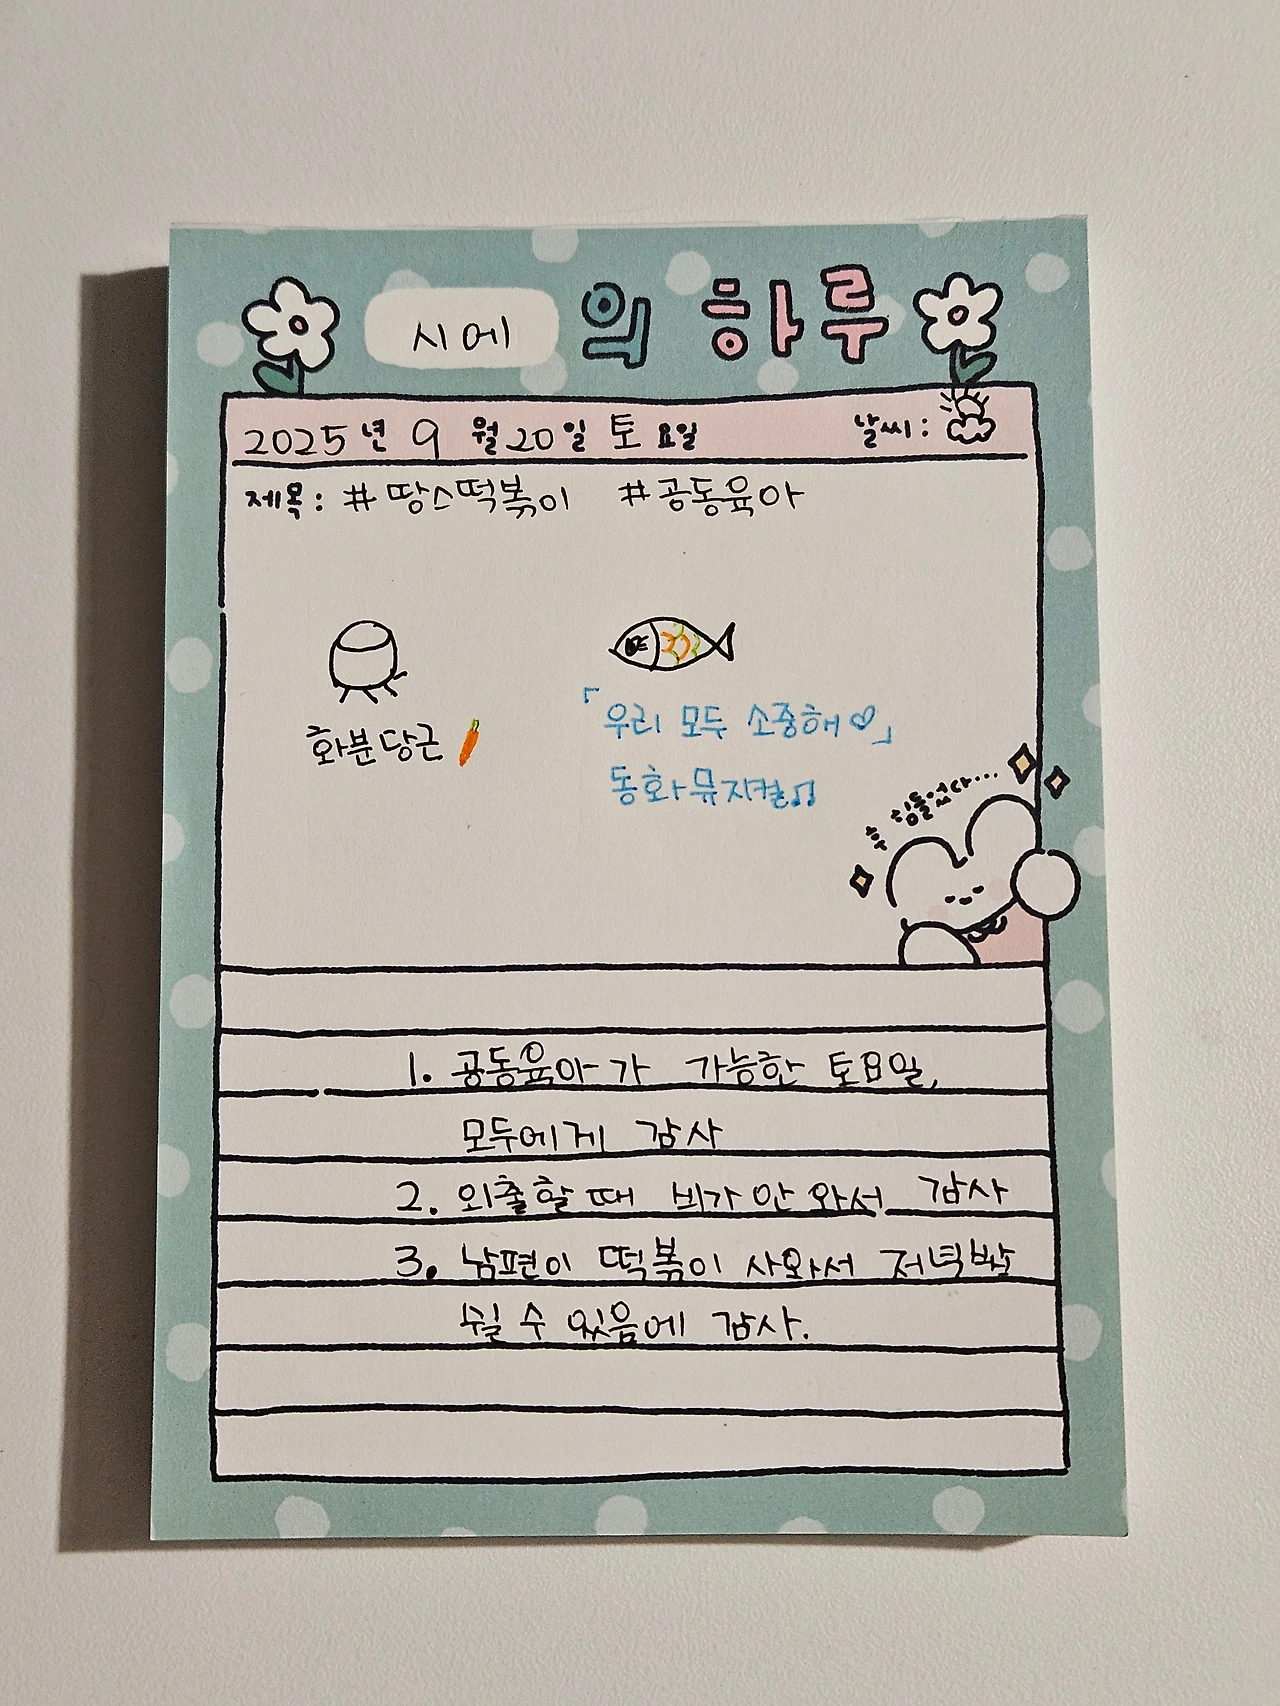 시에 의 하루
2025년 9월 20일 토요일 날씨:
제목: #땅스떡볶이 #공동육아
화분당근
「우리 모두 소중해♡」
동화뮤지컬♫
후 힘들었다...
1. 공동육아가 가능한 토요일,
모두에게 감사
2. 외출할 때 비가 안 와서 감사
3. 남편이 떡볶이 사와서 저녁밥
쉴 수 있음에 감사.